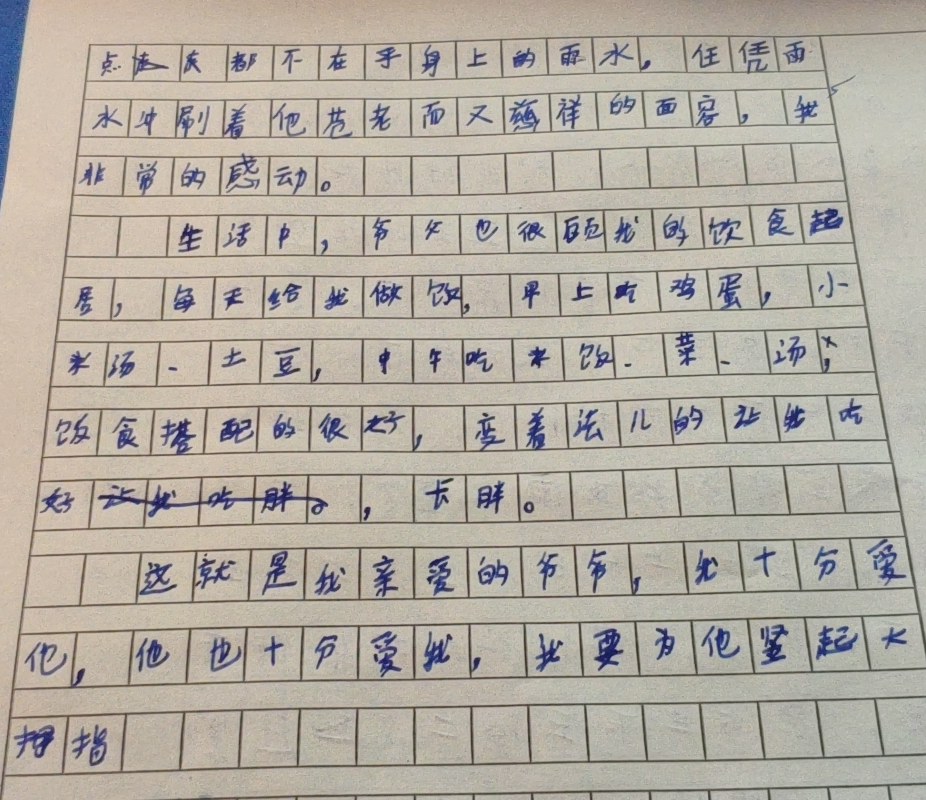 点都不在乎身上的雨水，任凭雨
水冲刷着他苍老而又慈祥的面容，我
非常的感动。
生活中，爷爷也很顾我的饮食起
居，每天给我做饭，早上吃鸡蛋，小
米汤、土豆，中午吃米饭、菜、汤，
饭食搭配的很好，变着法儿的让我吃
好让我吃胖。，长胖。
这就是我亲爱的爷爷，我十分爱
他，他也十分爱我，我要为他竖起大
拇指